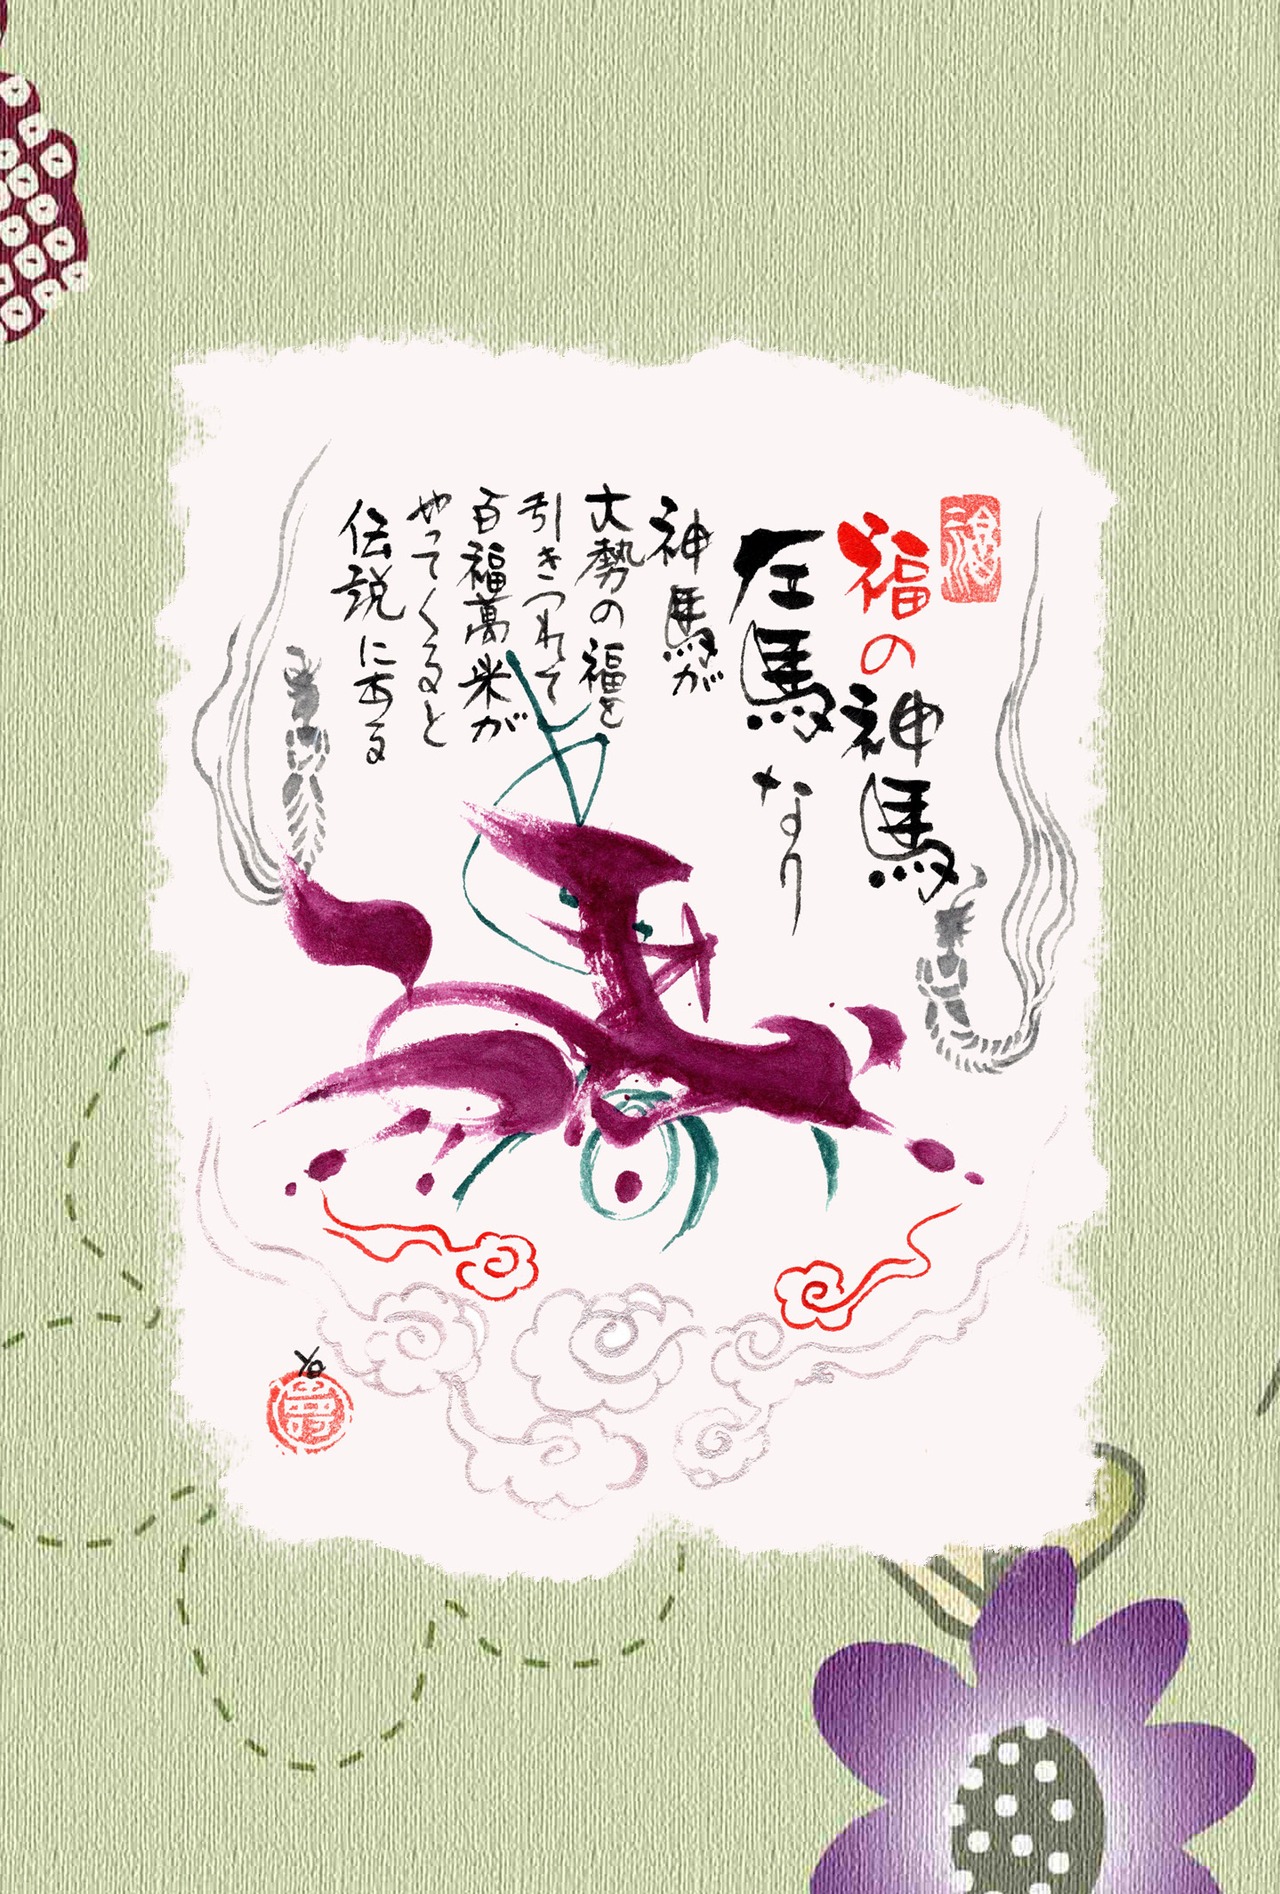 福
福の神馬
左馬なり
神馬が
大勢の福を
引きつれて
百福萬来が
やってくると
伝説にある
Yo